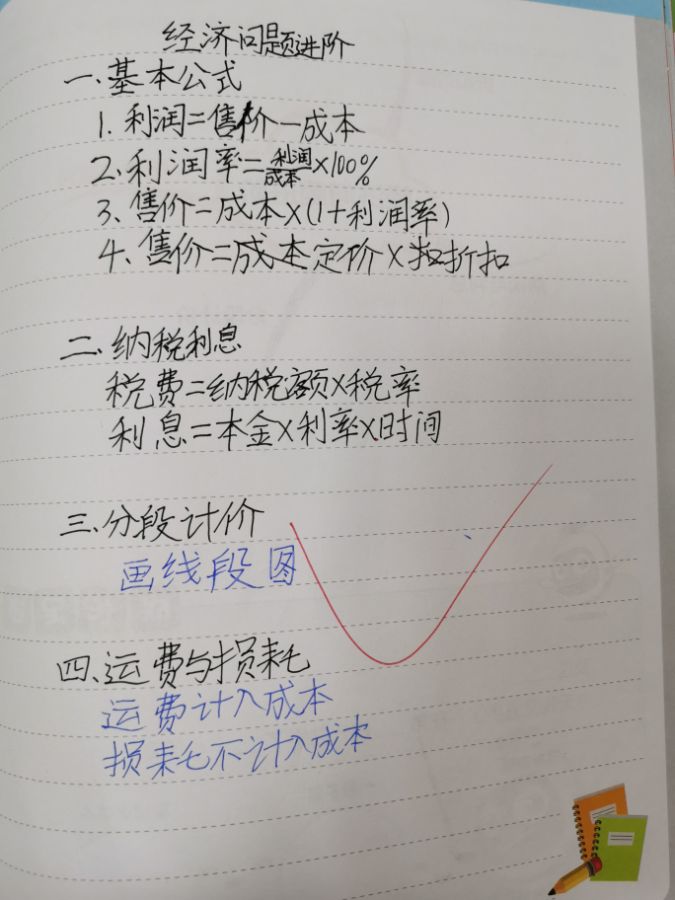 经济问题进阶
一、基本公式
1. 利润=售价-成本
2、利润率=利润/成本×100%
3、售价=成本×(1+利润率)
4、售价=成本定价×扣折扣
二、纳税利息
税费=纳税额×税率
利息=本金×利率×时间
三、分段计价
画线段图
四、运费与损耗
运费计入成本
损耗不计入成本